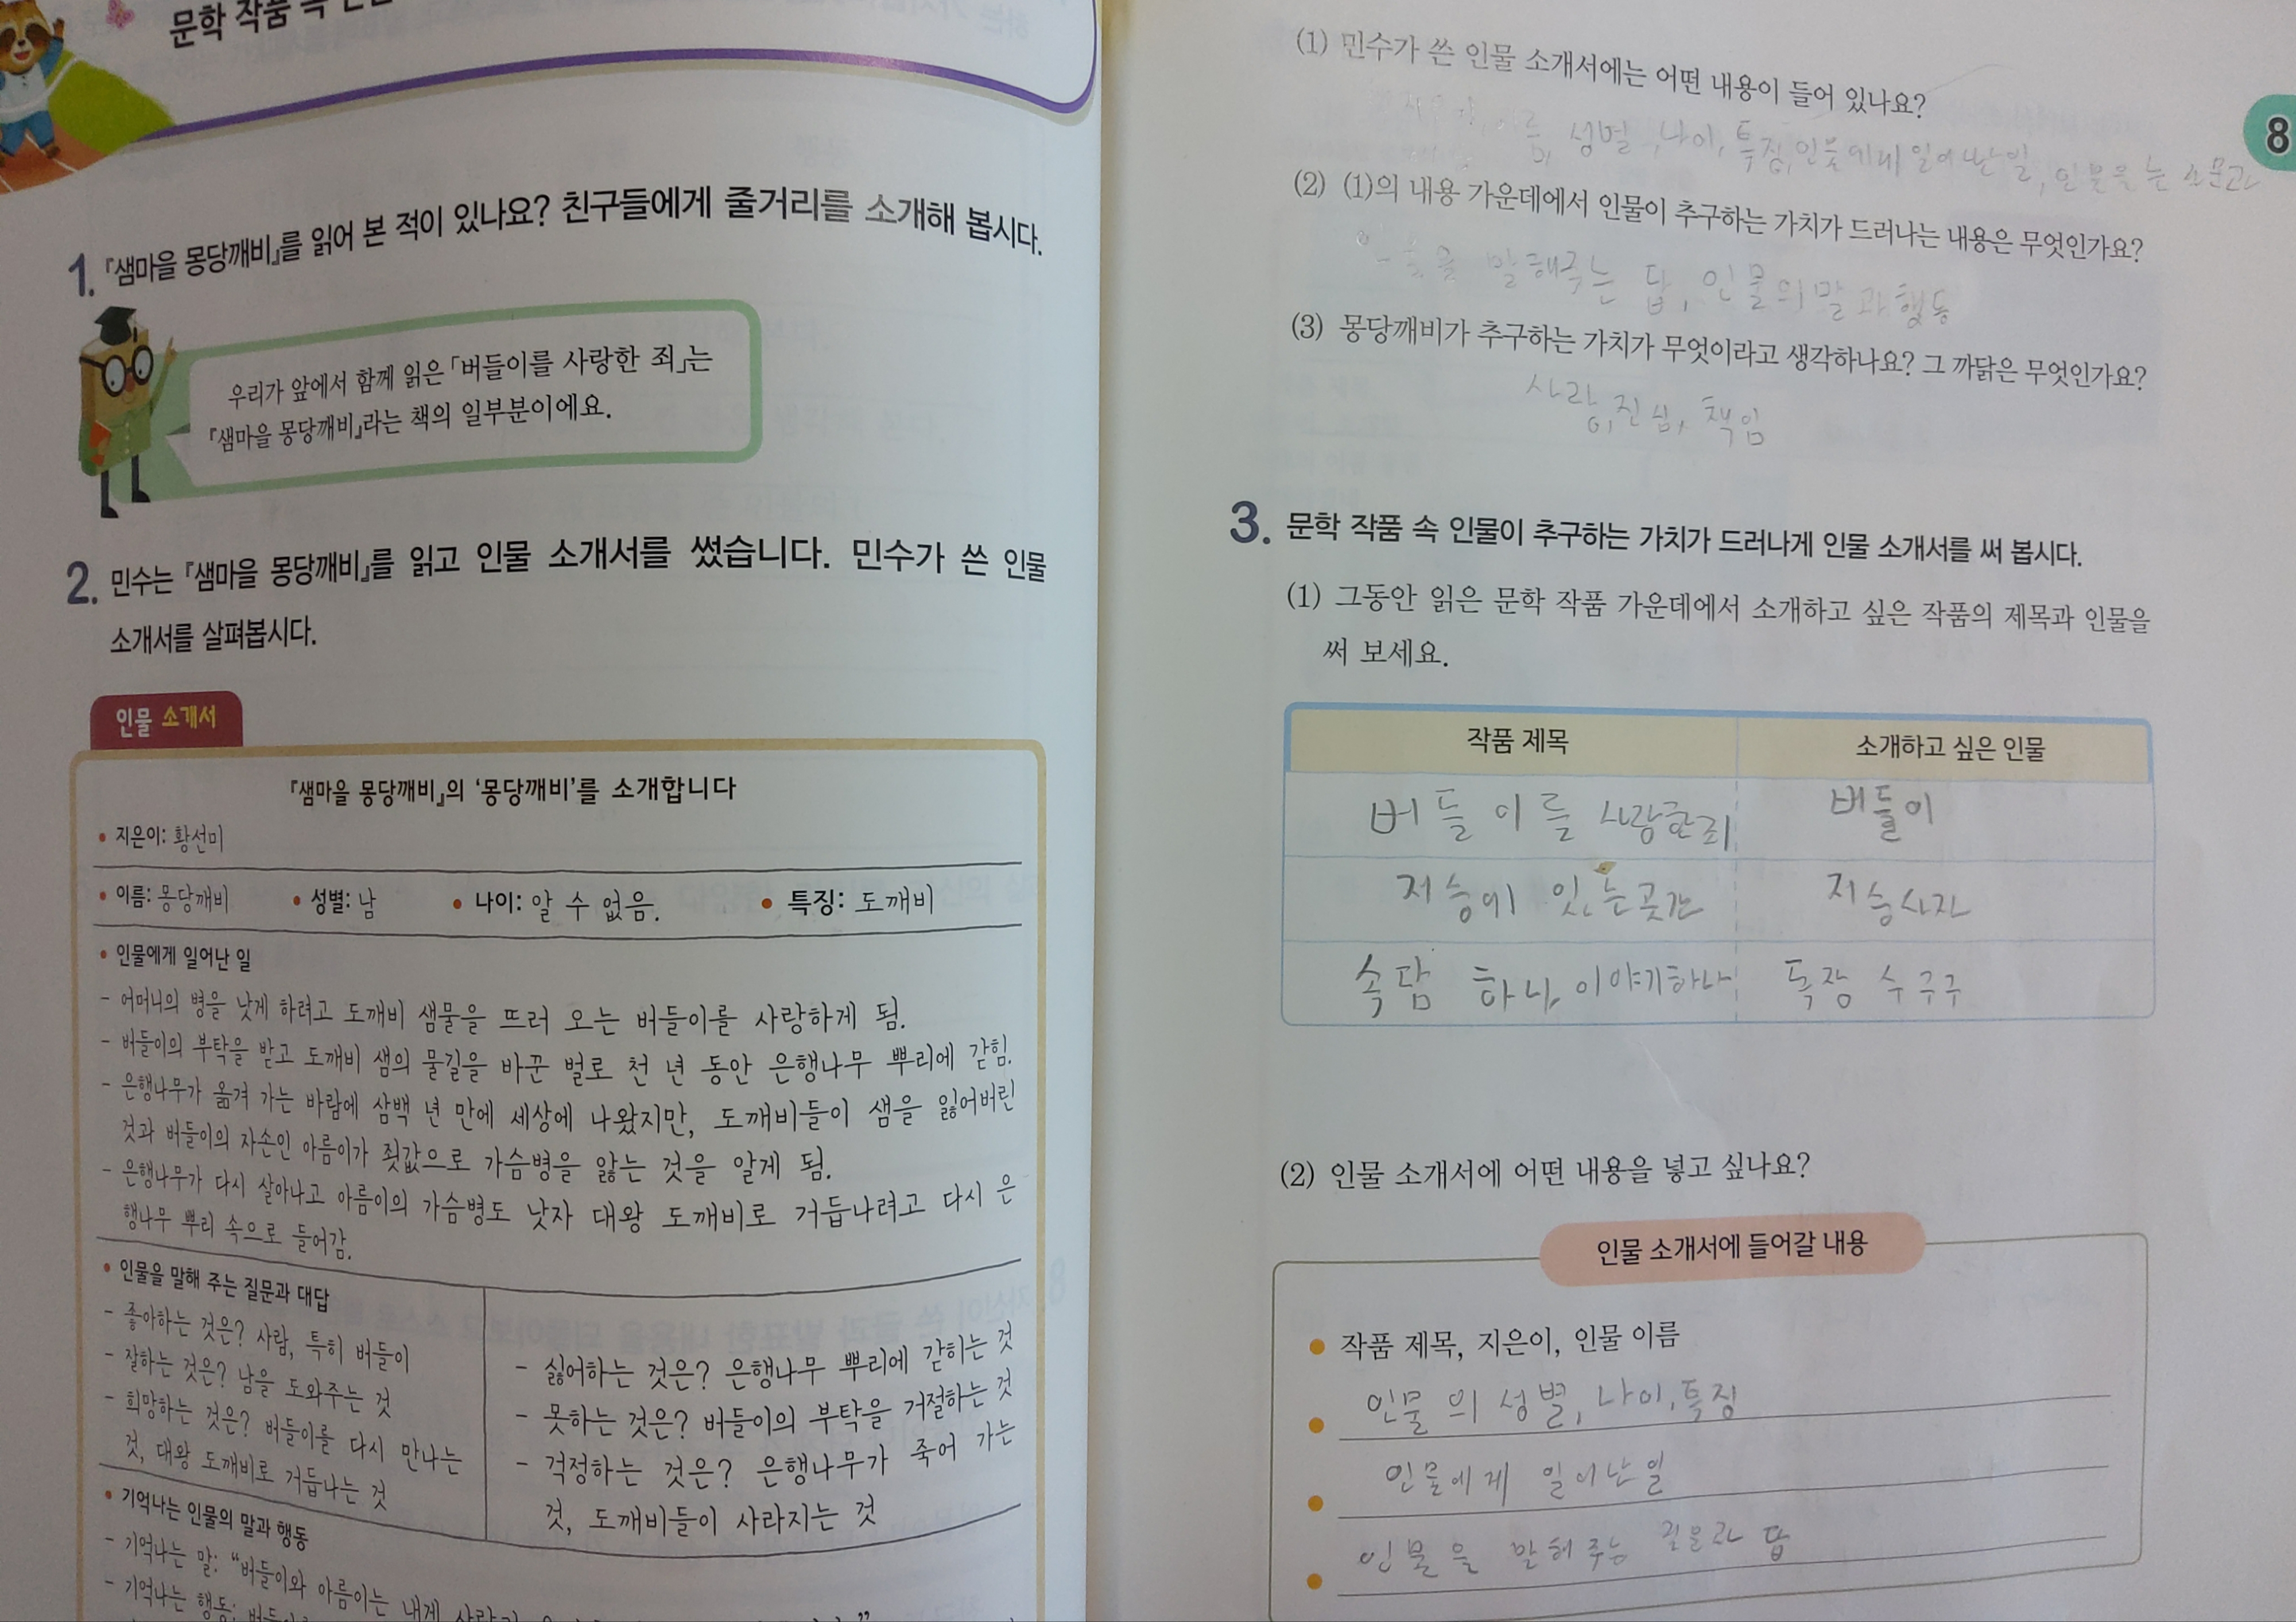 문학 작품 속
1. 『샘마을 몽당깨비』를 읽어 본 적이 있나요? 친구들에게 줄거리를 소개해 봅시다.
우리가 앞에서 함께 읽은 「버들이를 사랑한 죄」는
『샘마을 몽당깨비』라는 책의 일부분이에요.
2. 민수는 『샘마을 몽당깨비』를 읽고 인물 소개서를 썼습니다. 민수가 쓴 인물
소개서를 살펴봅시다.
인물 소개서
『샘마을 몽당깨비』의 ‘몽당깨비’를 소개합니다
• 지은이: 황선미
• 이름: 몽당깨비 • 성별: 남 • 나이: 알 수 없음. • 특징: 도깨비
• 인물에게 일어난 일
- 어머니의 병을 낫게 하려고 도깨비 샘물을 뜨러 오는 버들이를 사랑하게 됨.
- 버들이의 부탁을 받고 도깨비 샘의 물길을 바꾼 벌로 천 년 동안 은행나무 뿌리에 갇힘.
- 은행나무가 옮겨 가는 바람에 삼백 년 만에 세상에 나왔지만, 도깨비들이 샘을 잃어버린
것과 버들이의 자손인 아름이가 죗값으로 가슴병을 앓는 것을 알게 됨.
- 은행나무가 다시 살아나고 아름이의 가슴병도 낫자 대왕 도깨비로 거듭나려고 다시 은
행나무 뿌리 속으로 들어감.
• 인물을 말해 주는 질문과 대답
- 좋아하는 것은? 사람, 특히 버들이
- 잘하는 것은? 남을 도와주는 것
- 희망하는 것은? 버들이를 다시 만나는
것, 대왕 도깨비로 거듭나는 것
- 싫어하는 것은? 은행나무 뿌리에 갇히는 것
- 못하는 것은? 버들이의 부탁을 거절하는 것
- 걱정하는 것은? 은행나무가 죽어 가는
것, 도깨비들이 사라지는 것
• 기억나는 인물의 말과 행동
- 기억나는 말: “버들이와 아름이는 내게
- 기억나는 행동:
(1) 민수가 쓴 인물 소개서에는 어떤 내용이 들어 있나요?
성별, 나이, 특징, 인물에게 일어난 일, 인물을
8
(2) (1)의 내용 가운데에서 인물이 추구하는 가치가 드러나는 내용은 무엇인가요?
인물을 말해주는 답, 인물의 말과 행동
(3) 몽당깨비가 추구하는 가치가 무엇이라고 생각하나요? 그 까닭은 무엇인가요?
사랑, 진심, 책임
3. 문학 작품 속 인물이 추구하는 가치가 드러나게 인물 소개서를 써 봅시다.
(1) 그동안 읽은 문학 작품 가운데에서 소개하고 싶은 작품의 제목과 인물을
써 보세요.
작품 제목 소개하고 싶은 인물
버들이를 사랑한 죄 버들이
저승에 있는 곳간 저승사자
속담 하나, 이야기하나 독장수 구구
(2) 인물 소개서에 어떤 내용을 넣고 싶나요?
인물 소개서에 들어갈 내용
• 작품 제목, 지은이, 인물 이름
• 인물의 성별, 나이, 특징
• 인물에게 일어난 일
• 인물을 말해 주는 질문과 답